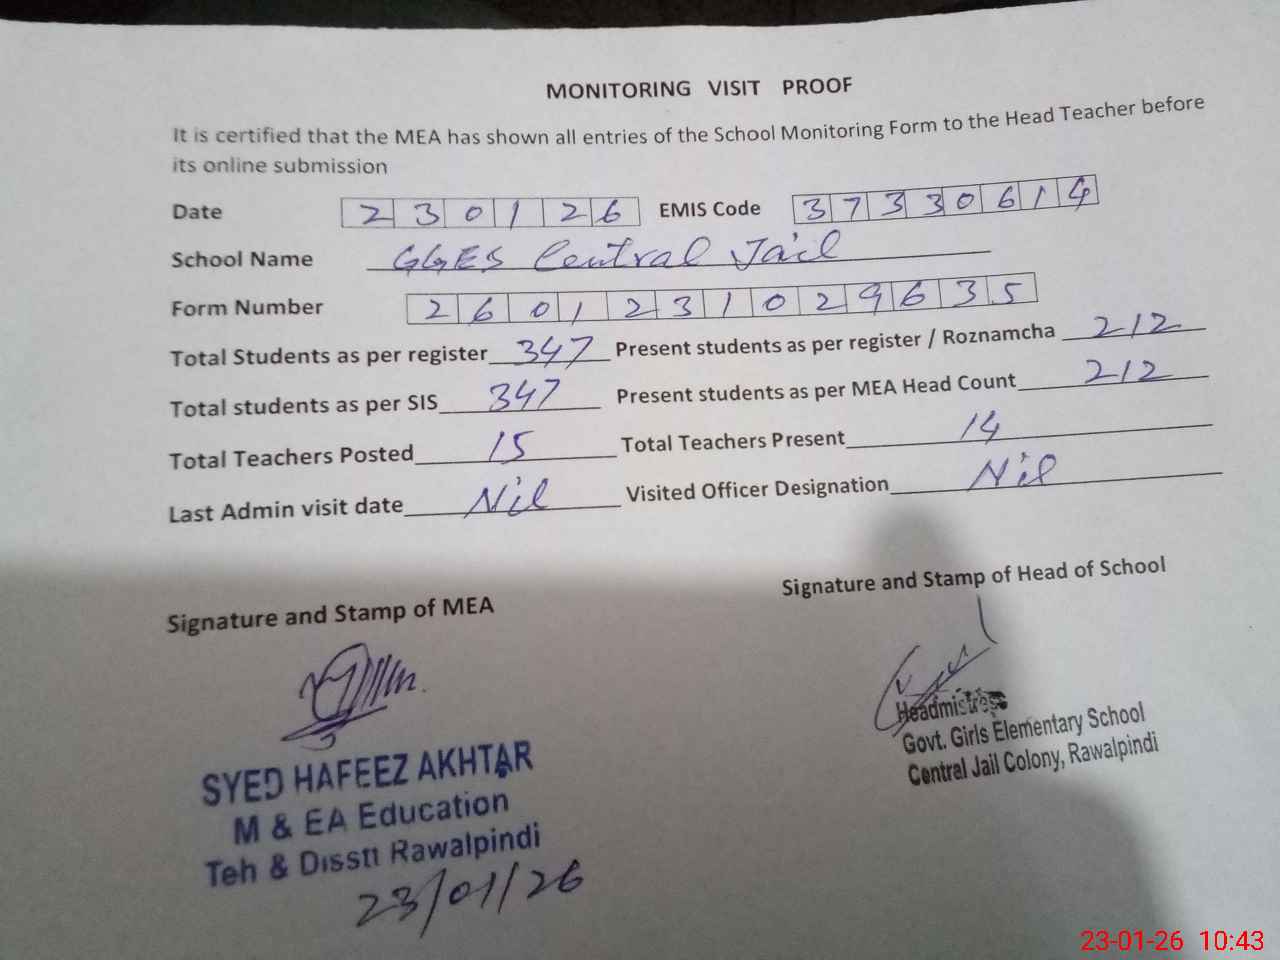 MONITORING VISIT PROOF
It is certified that the MEA has shown all entries of the School Monitoring Form to the Head Teacher before
its online submission
Date 230126 EMIS Code 37330614
School Name GGES Central Jail
Form Number 2601231029635
Total Students as per register 347 Present students as per register / Roznamcha 212
Total students as per SIS 347 Present students as per MEA Head Count 212
Total Teachers Posted 15 Total Teachers Present 14
Last Admin visit date Nil Visited Officer Designation Nil
Signature and Stamp of MEA Signature and Stamp of Head of School
SYED HAFEEZ AKHTAR
M & EA Education
Teh & Disstt Rawalpindi
23/01/26
Headmistress
Govt. Girls Elementary School
Central Jail Colony, Rawalpindi
23-01-26 10:43